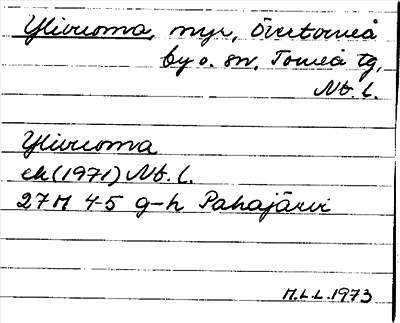 Ylivuoma, myr, Övertorneå
by o. sn, Torneå tg,
Nb. l.
Ylivuoma
ek (1971) Nb. l.
27M 4-5 g-h Pahajärvi
M.L.L. 1973